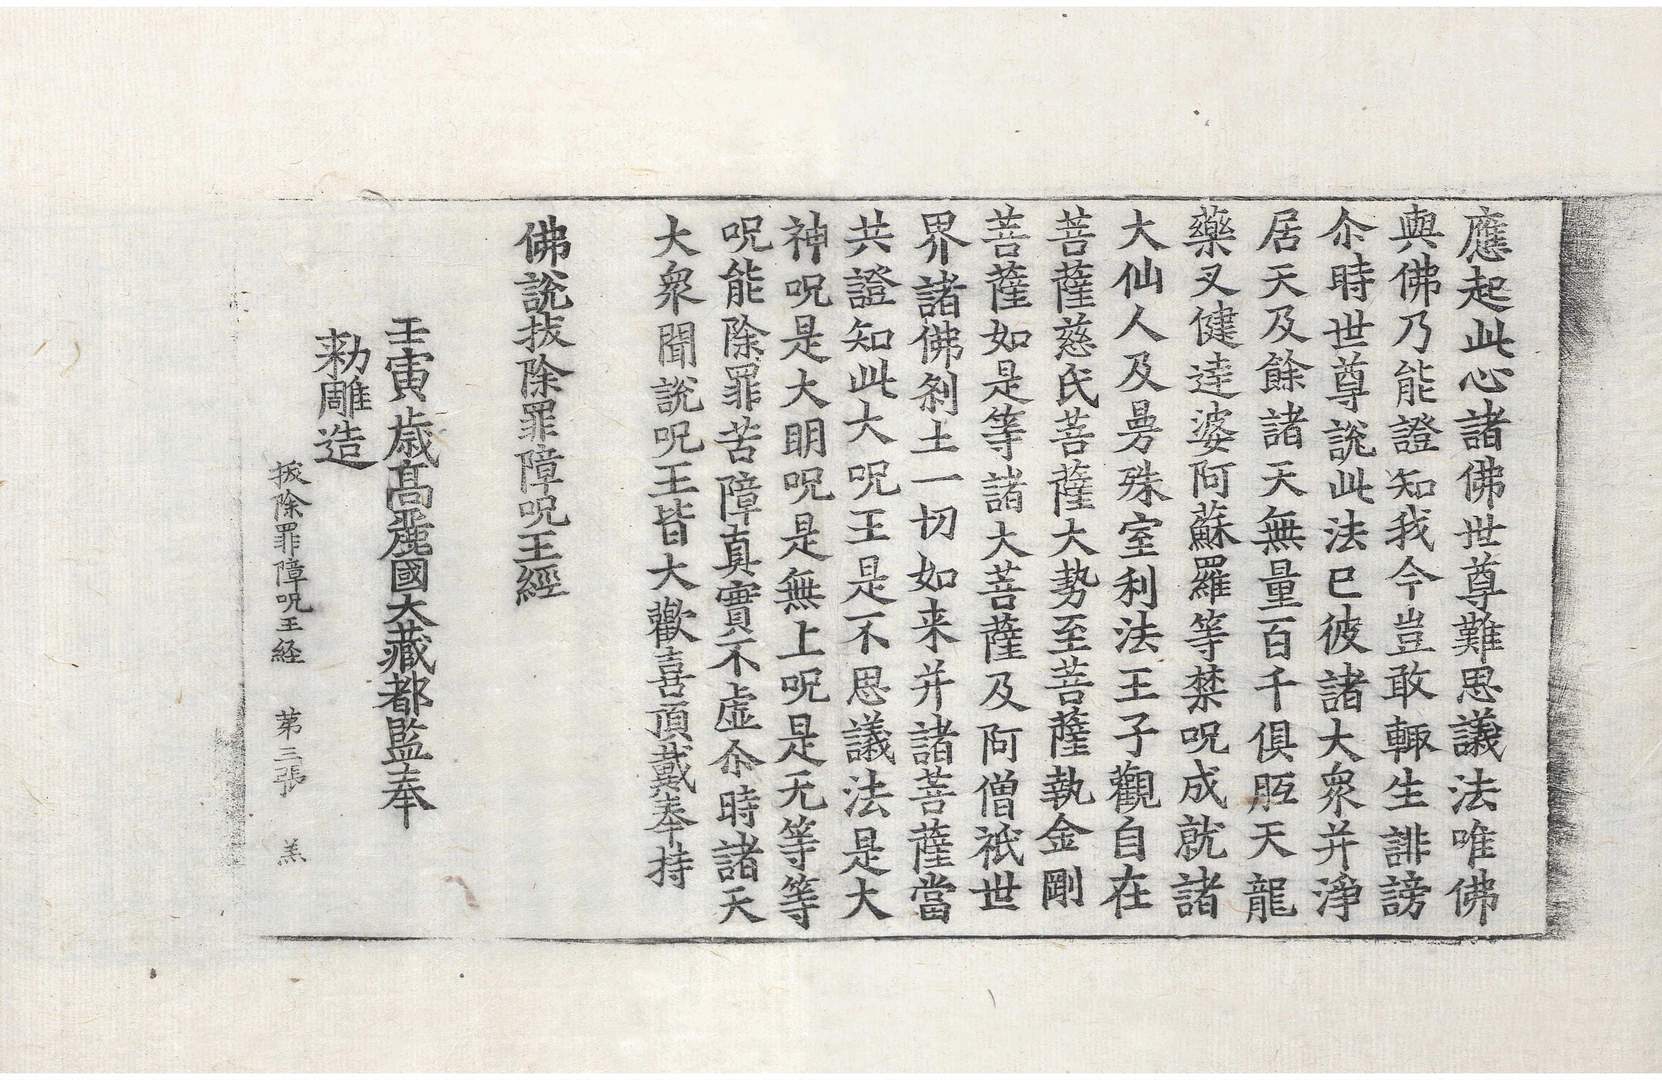 應起此心諸佛世尊難思議法唯佛
與佛乃能證知我今豈敢輙生誹謗
尒時世尊說此法已彼諸大衆并淨
居天及餘諸天無量百千俱胝天龍
藥叉健達婆阿蘇羅等禁呪成就諸
大仙人及曼殊室利法王子觀自在
菩薩慈氏菩薩大勢至菩薩執金剛
菩薩如是等諸大菩薩及阿僧祇世
界諸佛刹土一切如来并諸菩薩當
共證知此大呪王是不思議法是大
神呪是大明呪是無上呪是无等等
呪能除罪苦障真實不虛尒時諸天
大衆聞說呪王皆大歡喜頂戴奉持
佛說拔除罪障呪王經
壬寅歳高麗國大藏都監奉
勑雕造
拔除罪障呪王経 苐三張 羔